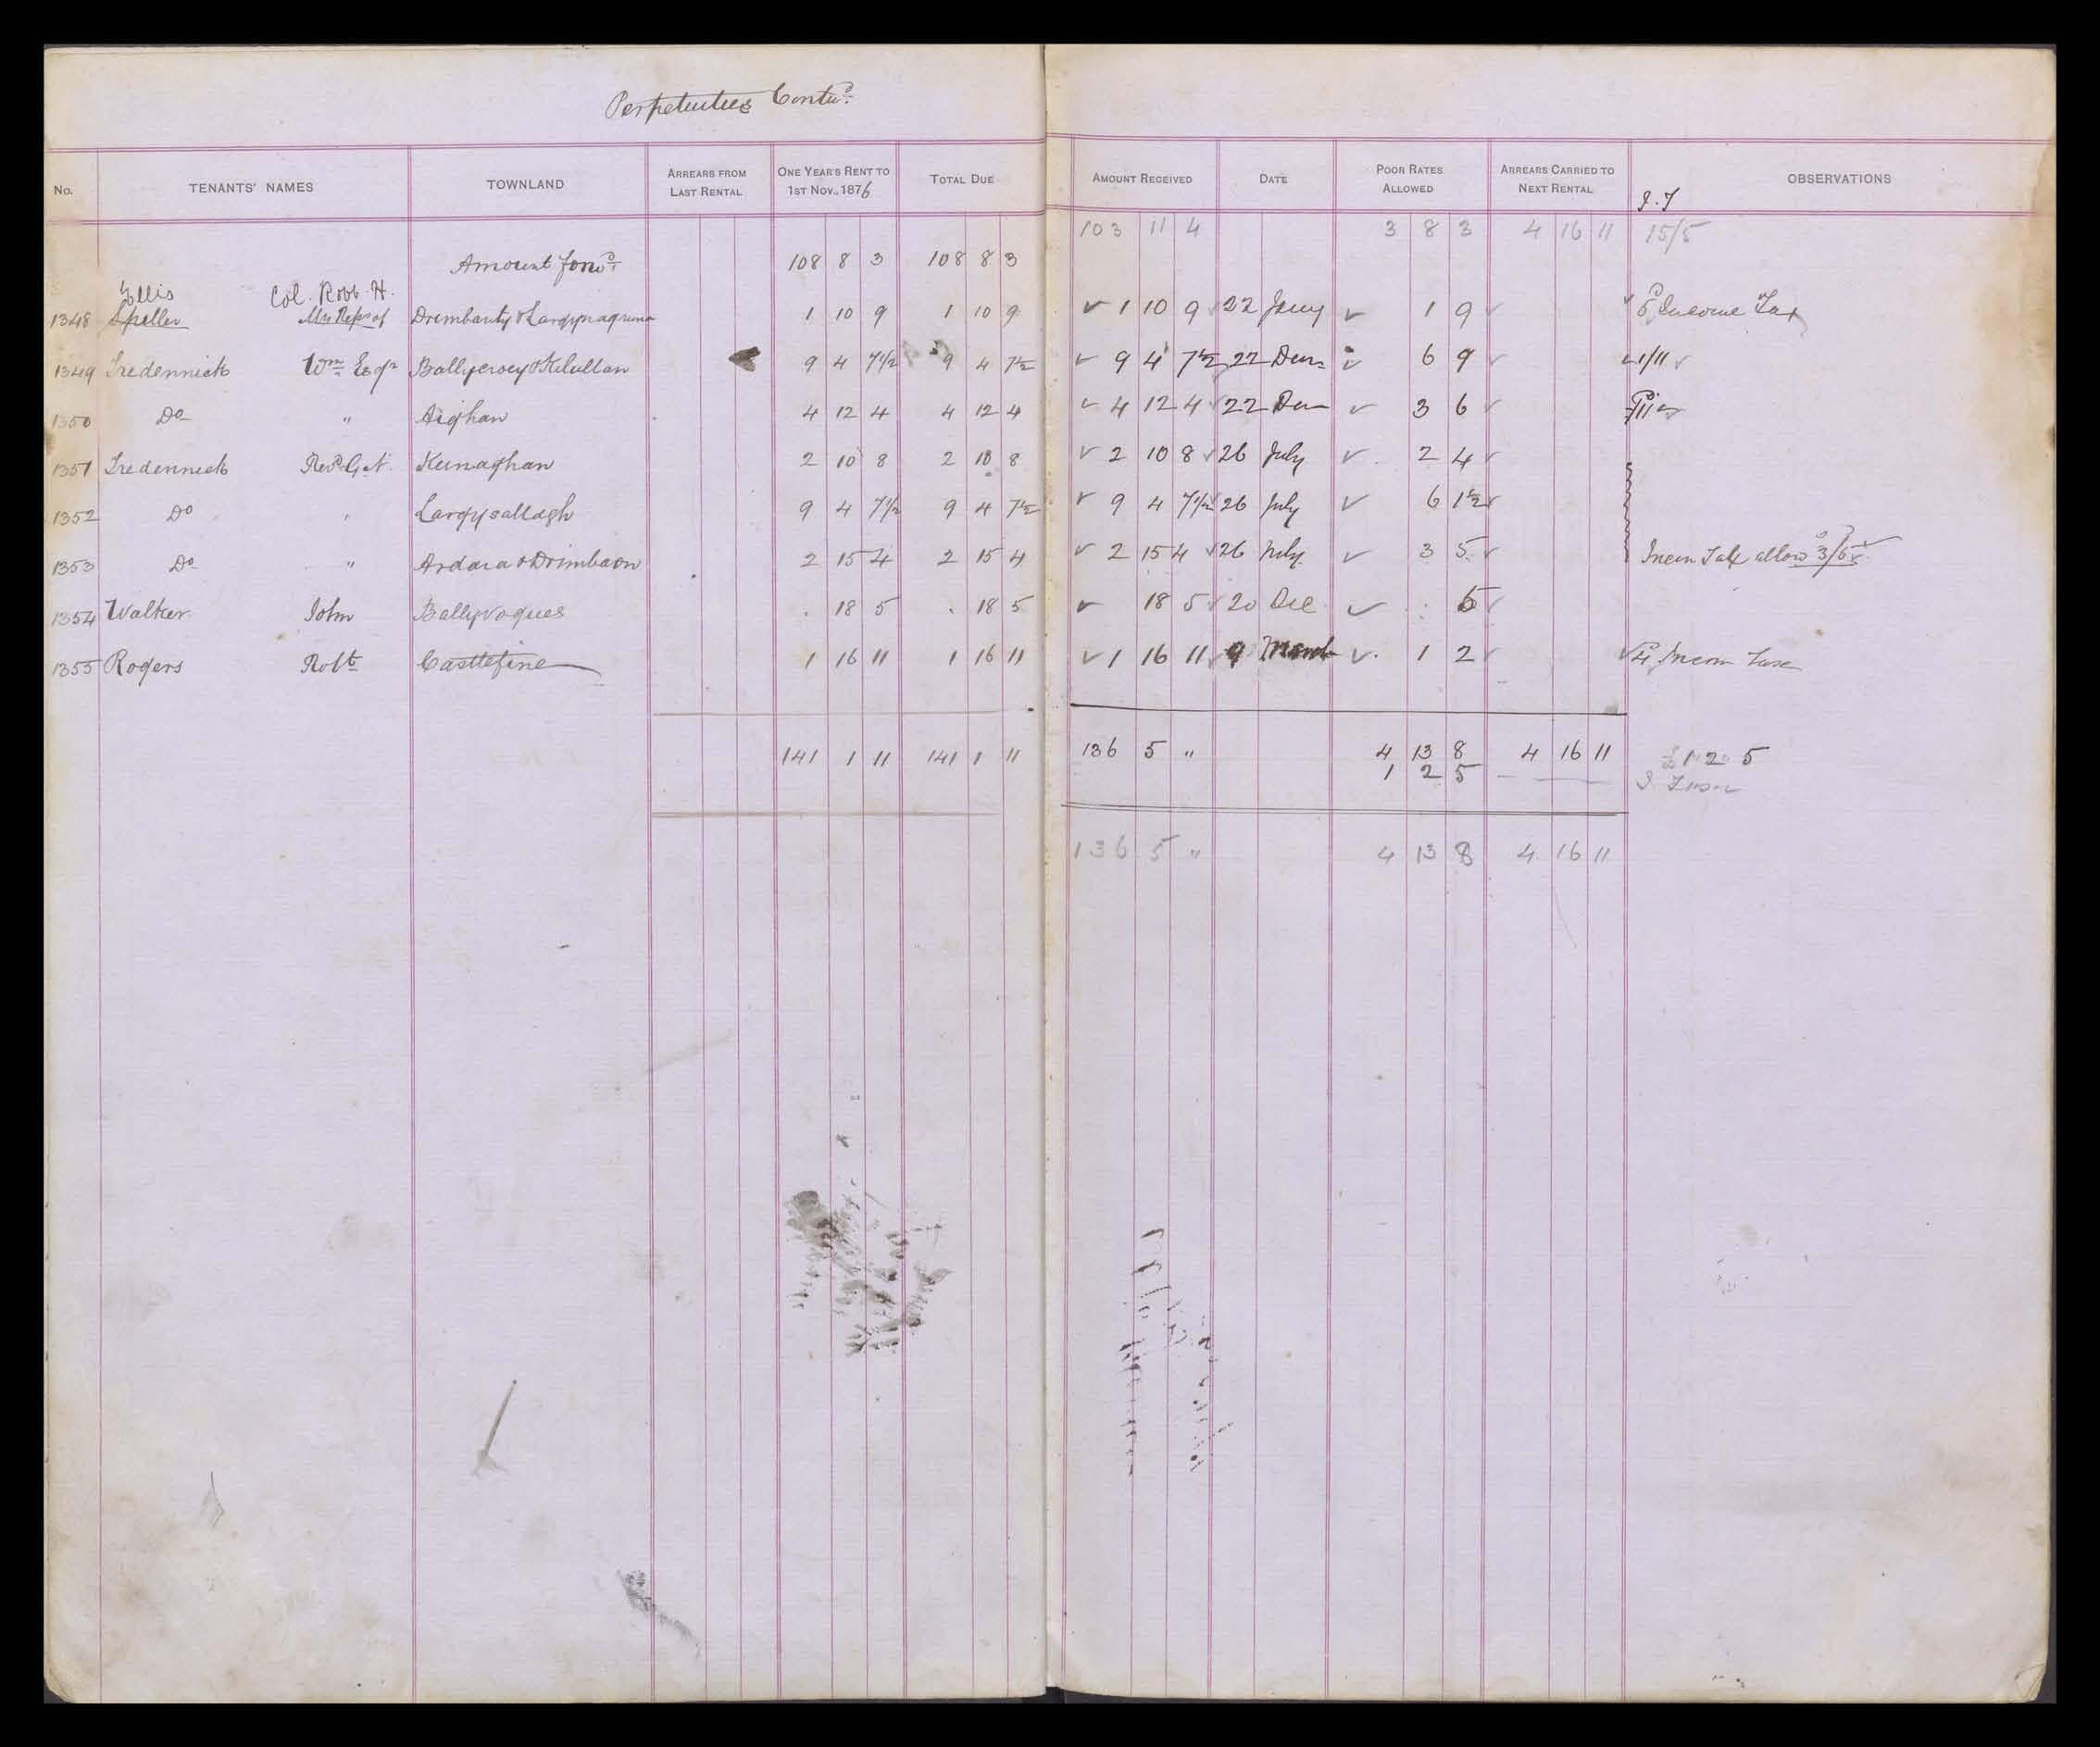 Perpetuities Contd.
No. TENANTS' NAMES TOWNLAND ARREARS FROM LAST RENTAL ONE YEAR'S RENT TO 1ST NOV., 1876 TOTAL DUE AMOUNT RECEIVED DATE POOR RATES ALLOWED ARREARS CARRIED TO NEXT RENTAL OBSERVATIONS
I.T
103 11 4 3 8 3 4 16 11 15/5
Amount forwd. 108 8 3 108 8 3
Ellis Col. Robt H.
1348 Speller Mrs Reps of 1 10 9 1 10 9 ✓ 1 10 9 ✓ 22 Jany ✓ 1 9 ✓ ✓ Income Tax
1349 Tredennick Wm Esqr 9 4 7 1/2 9 4 7 1/2 ✓ 9 4 7 1/2 22 ✓ 6 9 ✓ ✓ 1/11 ✓
1350 Do " Aighan 4 12 4 4 12 4 ✓ 4 12 4 ✓ 22 ✓ 3 6 ✓
1351 Tredennick Keenaghan 2 10 8 2 10 8 ✓ 2 10 8 ✓ 26 July ✓ 2 4 ✓
1352 Do " Largysallagh 9 4 7 1/2 9 4 7 1/2 ✓ 9 4 7 1/2 26 July ✓ 6 1 1/2 ✓
1353 Do " Ardara & Drimbaon 2 15 4 2 15 4 ✓ 2 15 4 ✓ 26 July ✓ 3 5 ✓ Incom Tax allowd 3/6 ✓
1354 Walker John Ballyvogues . 18 5 . 18 5 ✓ 18 5 ✓ 20 Dec ✓ ✓
1355 Rogers Robt Castlefine 1 16 11 1 16 11 ✓ 1 16 11 ✓ 9 March ✓ 1 2 ✓ ✓ Incom Tax
141 1 11 141 1 11 136 5 " 4 13 8 4 16 11 £1 2 5
1 2 5
136 5 " 4 13 8 4 16 11